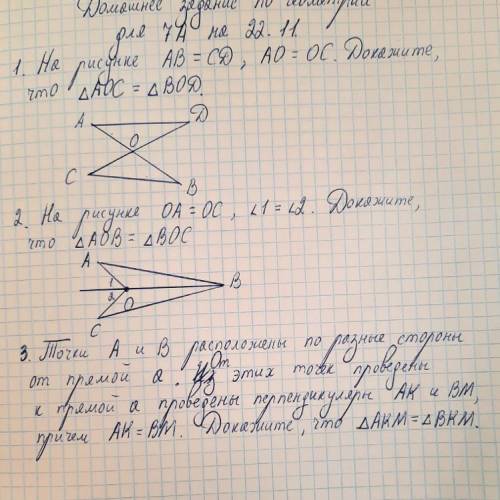 Домашнее задание по геометрии
для 7А на 22.11.
1. На рисунке AB = CD, AO = OC. Докажите,
что △AOC = △BOD.
A
D
O
C
B
2. На рисунке OA = OC, ∠1 = ∠2. Докажите,
что △AOB = △BOC
A
1
B
2
O
C
3. Точки A и B расположены по разные стороны
от прямой a. От этих точек проведены
к прямой a проведены перпендикуляры AK и BM,
причем AK = BM. Докажите, что △AKM = △BKM.